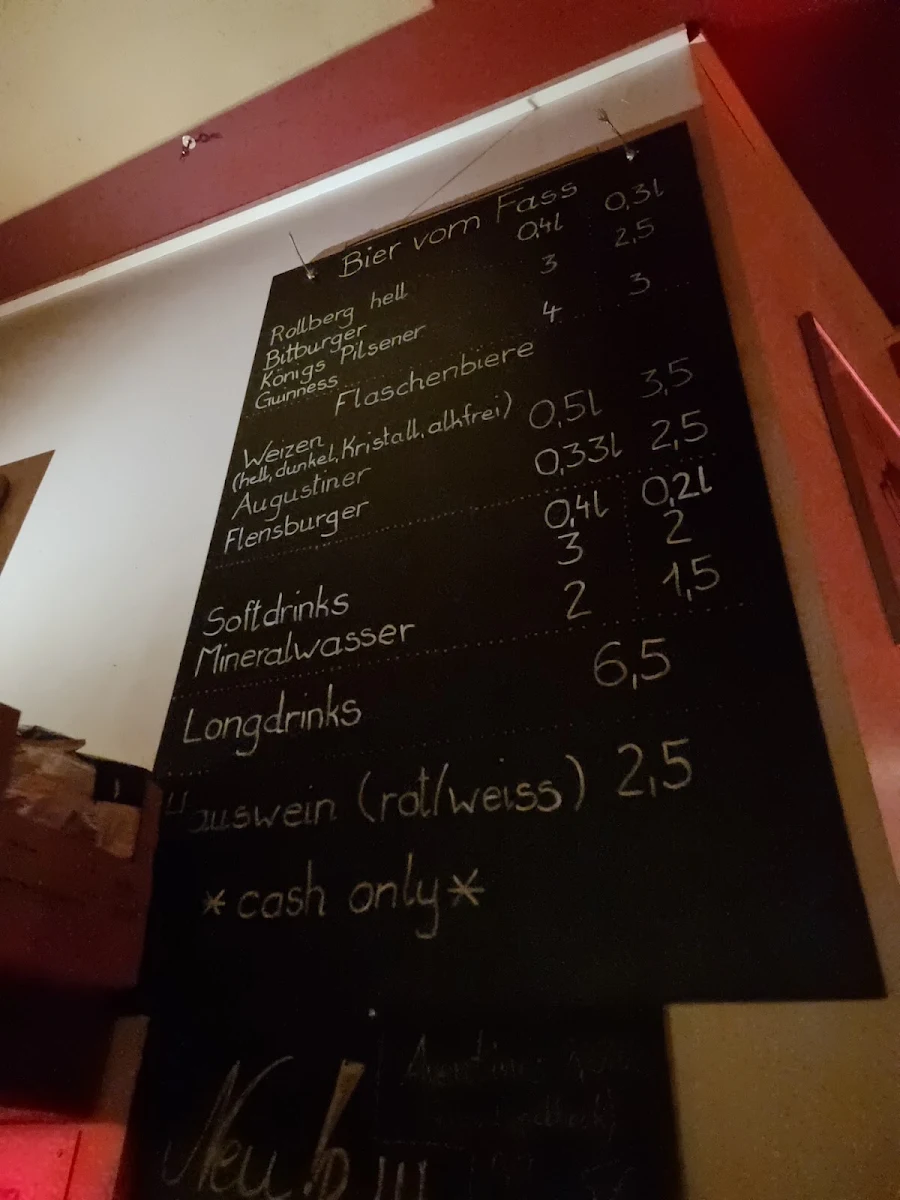 Bier vom Fass 0,4l 0,3l
Rollberg hell 3 2,5
Bitburger
Königs Pilsener
Guinness 4 3
Flaschenbiere
Weizen
(hell, dunkel, Kristall, alkfrei) 0,5l 3,5
Augustiner
Flensburger 0,33l 2,5
0,4l 0,2l
Softdrinks 3 2
Mineralwasser 2 1,5
Longdrinks 6,5
Hauswein (rot/weiss) 2,5
*cash only*
Neu!